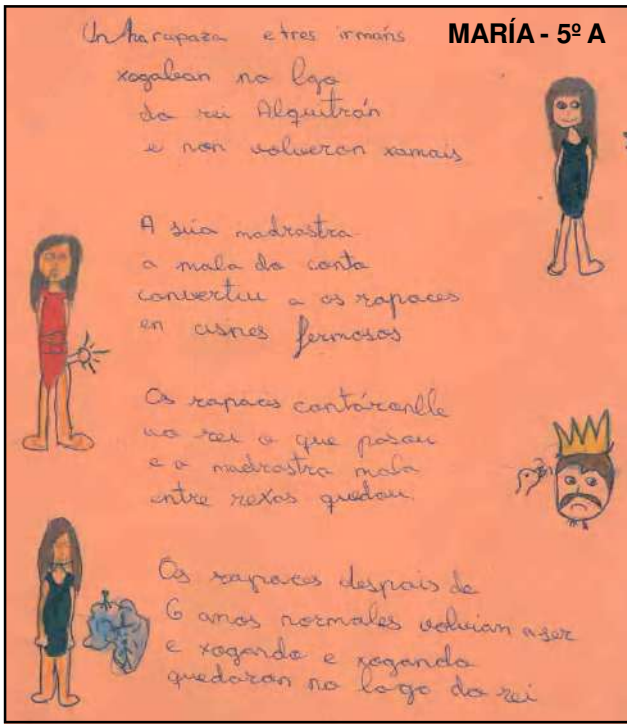 MARÍA - 5º A
Unha rapaza e tres irmáns
xogaban no lgo
do rei Alquitrán
e non volveron xamais
A súa madrastra
a mala do conto
convertiu a os rapaces
en cisnes fermosos
Os rapaces contáronlle
ao rei o que pasou
e a madrastra mala
entre rexas quedou.
Os rapaces despois de
6 anos normales volvian a ser
e xogando e xogando
quedaron no lago do rei